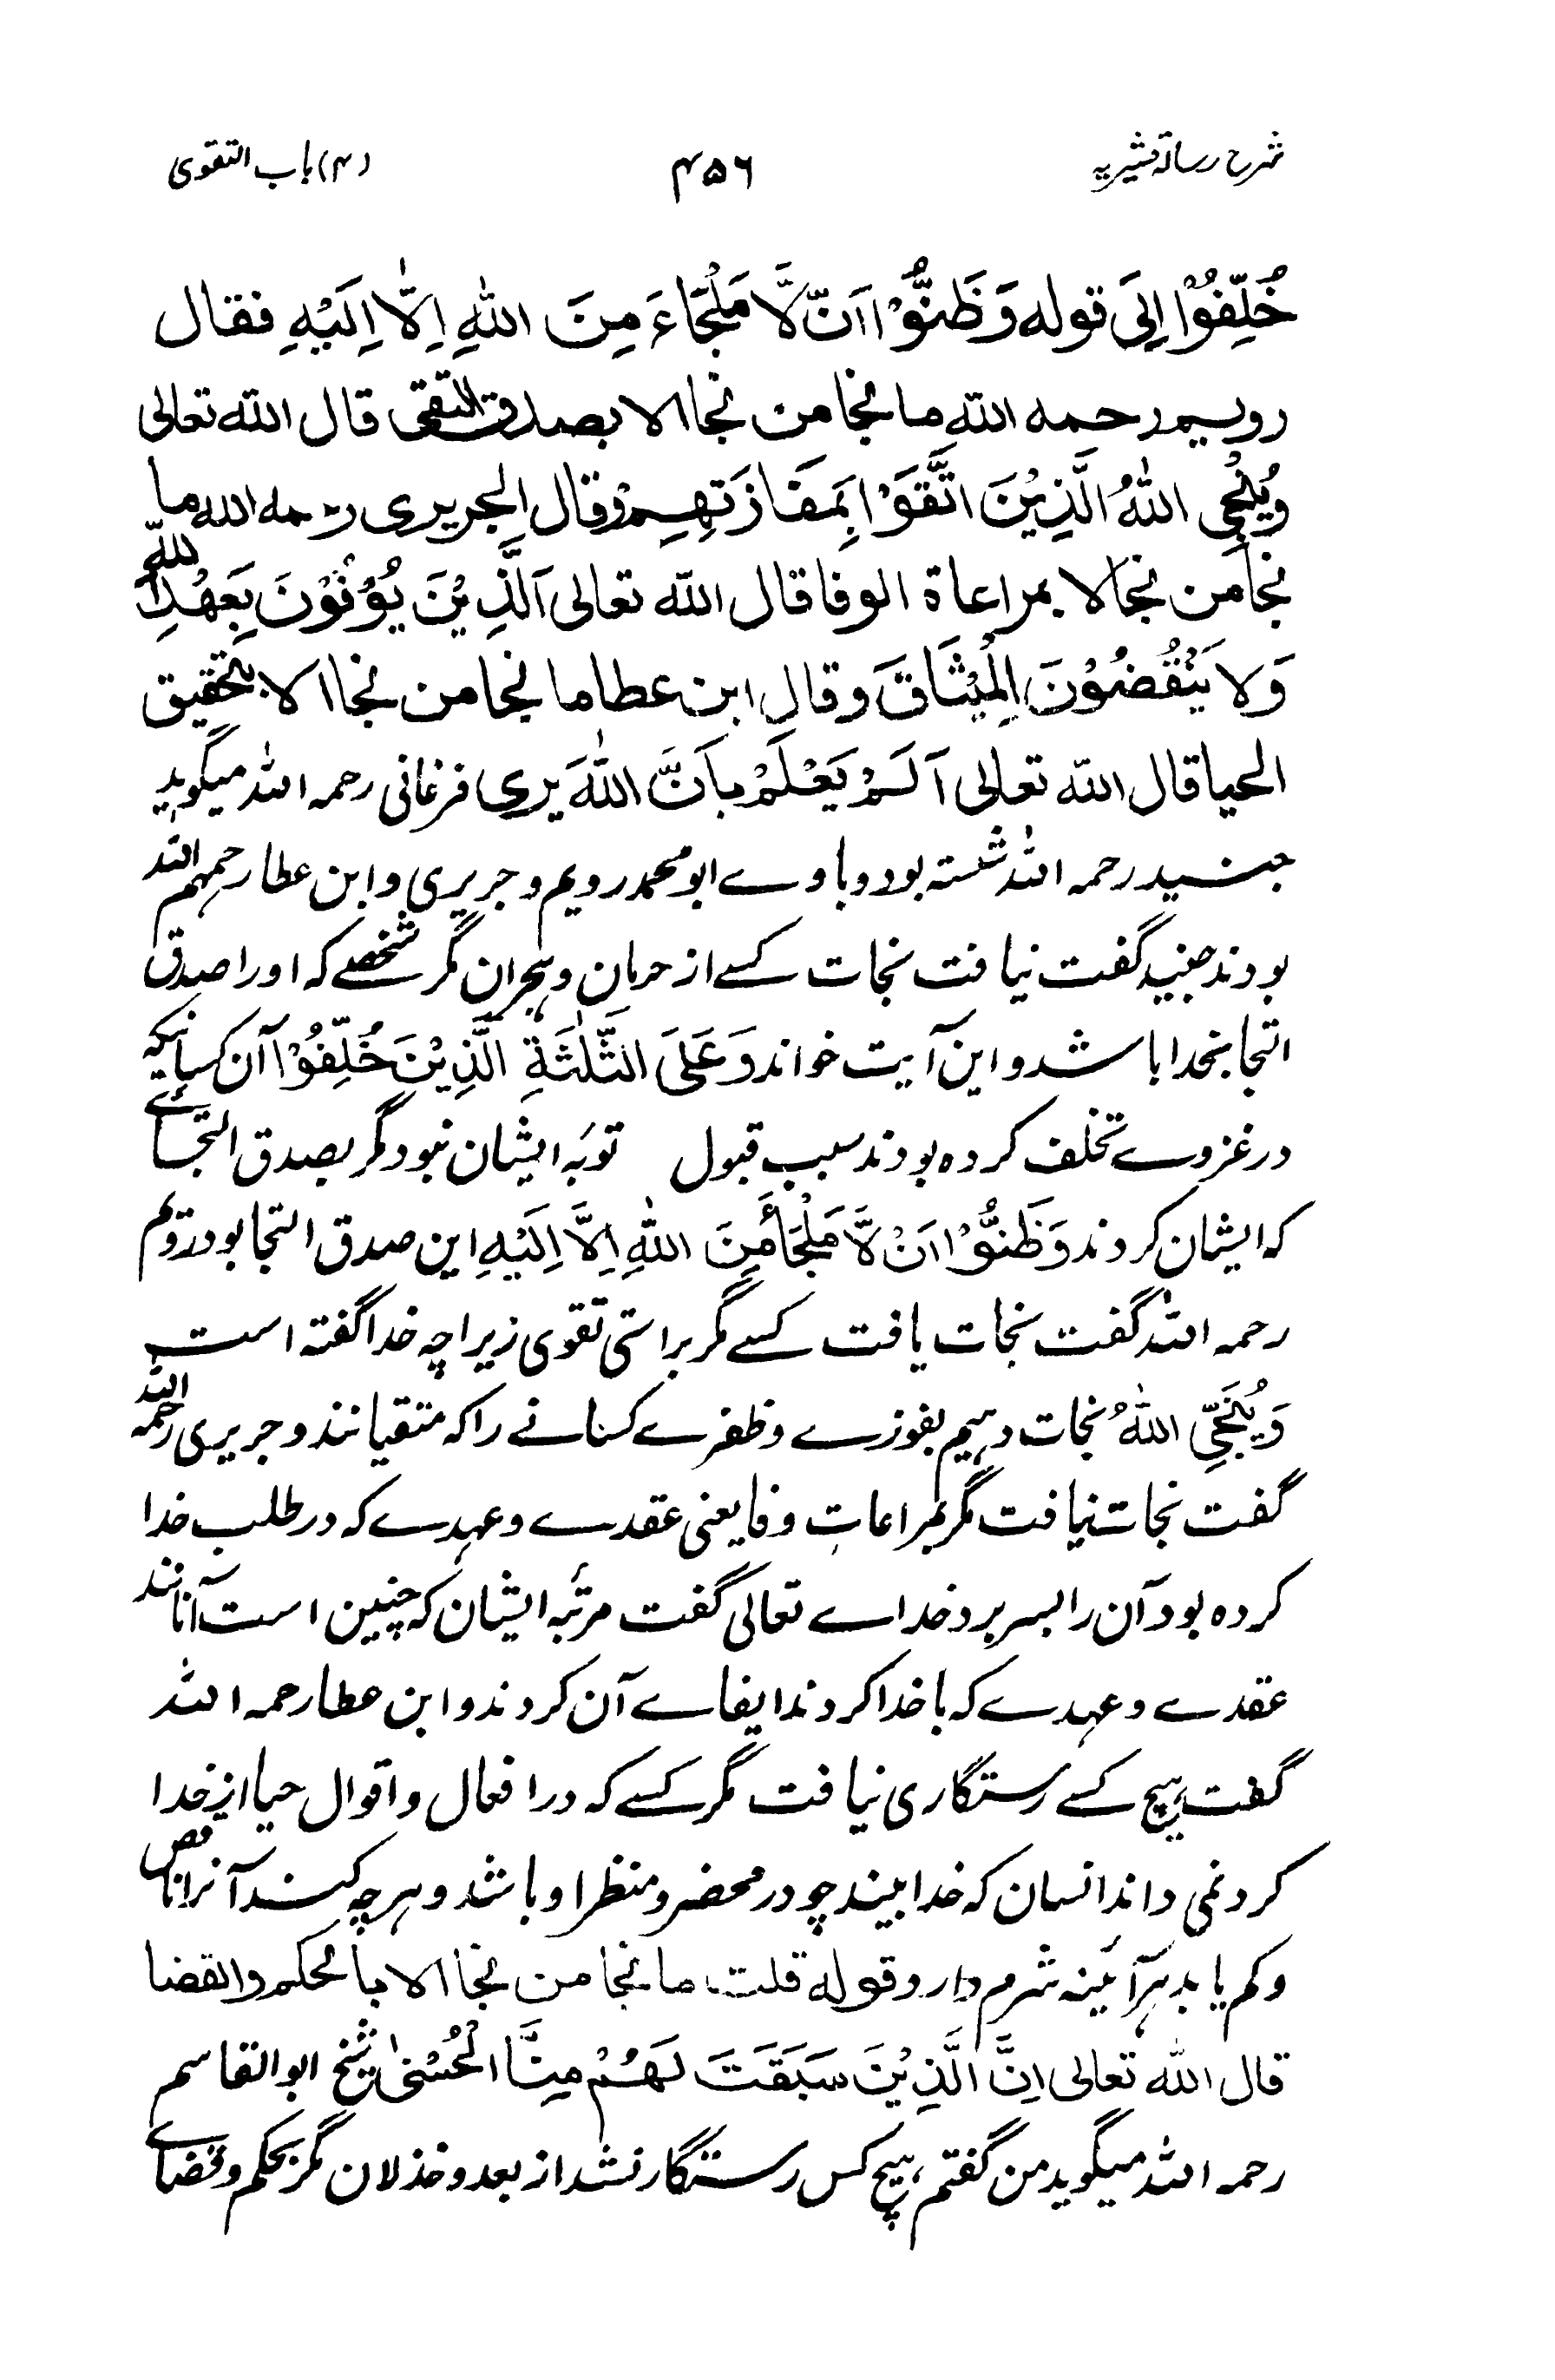 شرح رسالۂ قشیریہ ۴۵۶ (۴) باب التقوی
خُلِّفُوْا اِلیَ قوله وَظَنُّوْا اَنّ لَّا مَلْجَاءَ مِنَ اللّٰهِ اِلَّا اِلَيْهِ فقال
رویم رحمه الله ما نجا من نجا الا بصدق التقی قال الله تعالی
وَيُنْجِی اللّٰهُ الَّذِيْنَ اتَّقَوْا بِمَفَازَتِهِمْ وقال الجریری رحمه الله ما
نجا من نجا الا بمراعاة الوفا قال الله تعالی اَلَّذِيْنَ يُوْفُوْنَ بِعَهْدِ اللّٰهِ
وَلا يَنْقُضُوْنَ الْمِيْثَاقَ وقال ابن عطا ما نجا من نجا الا بتحقیق
الحیا قال الله تعالی اَلَمْ يَعْلَمْ بِاَنَّ اللّٰهَ يَری فرغانی رحمہ اللہ میگوید
جنید رحمہ اللہ نشستہ بود و با وے ابو محمد رویم و جریری و ابن عطا رحمہم اللہ
بودند جنید گفت نیافت نجات کسے از حرمان و ہجران مگر شخصے کہ او را صدق
التجا بخدا باشد و این آیت خواند وَعَلَی الثَّلٰثَةِ الَّذِيْنَ خُلِّفُوْا آن کسانیکہ
در غزوے تخلف کردہ بودند سبب قبول توبۂ ایشان نبود مگر بصدق التجائے
کہ ایشان کردند وَظَنُّوْا اَنْ لَّا مَلْجَأَ مِنَ اللّٰهِ اِلَّا اِلَيْهِ این صدق التجا بود رویم
رحمہ اللہ گفت نجات یافت کسے مگر براستی تقوی زیراچہ خدا گفتہ است
وَيُنَجِّی اللّٰهُ نجات دہیم بفوزے و ظفرے کسانے را کہ متقیانند و جریری رحمہ اللہ
گفت نجات نیافت مگر بمراعات وفا یعنی عقدے و عہدے کہ در طلب خدا
کردہ بود آن را بسر برد خداے تعالی گفت مرتبۂ ایشان کہ چنین است آنانند
عقدے و عہدے کہ با خدا کردند ایفاے آن کردند و ابن عطا رحمہ اللہ
گفت ہیچ کسے رستگاری نیافت مگر کسے کہ در افعال و اقوال حیا از خدا
کرد نمی داند انسان کہ خدا بیند چو در محضر و منظر او باشد و ہر چہ کند آنرا ناقص
و کم یابد ہر آئینہ شرم دارد قوله قلت ما نجا من نجا الا بالحکم والقضا
قال الله تعالی اِنَّ الَّذِيْنَ سَبَقَتَ لَهُمْ مِنَّا الْحُسْنٰی شیخ ابو القاسم
رحمہ اللہ میگوید من گفتم ہیچ کس رستگار نشد از بعد و خذلان مگر بحکم و قضاے